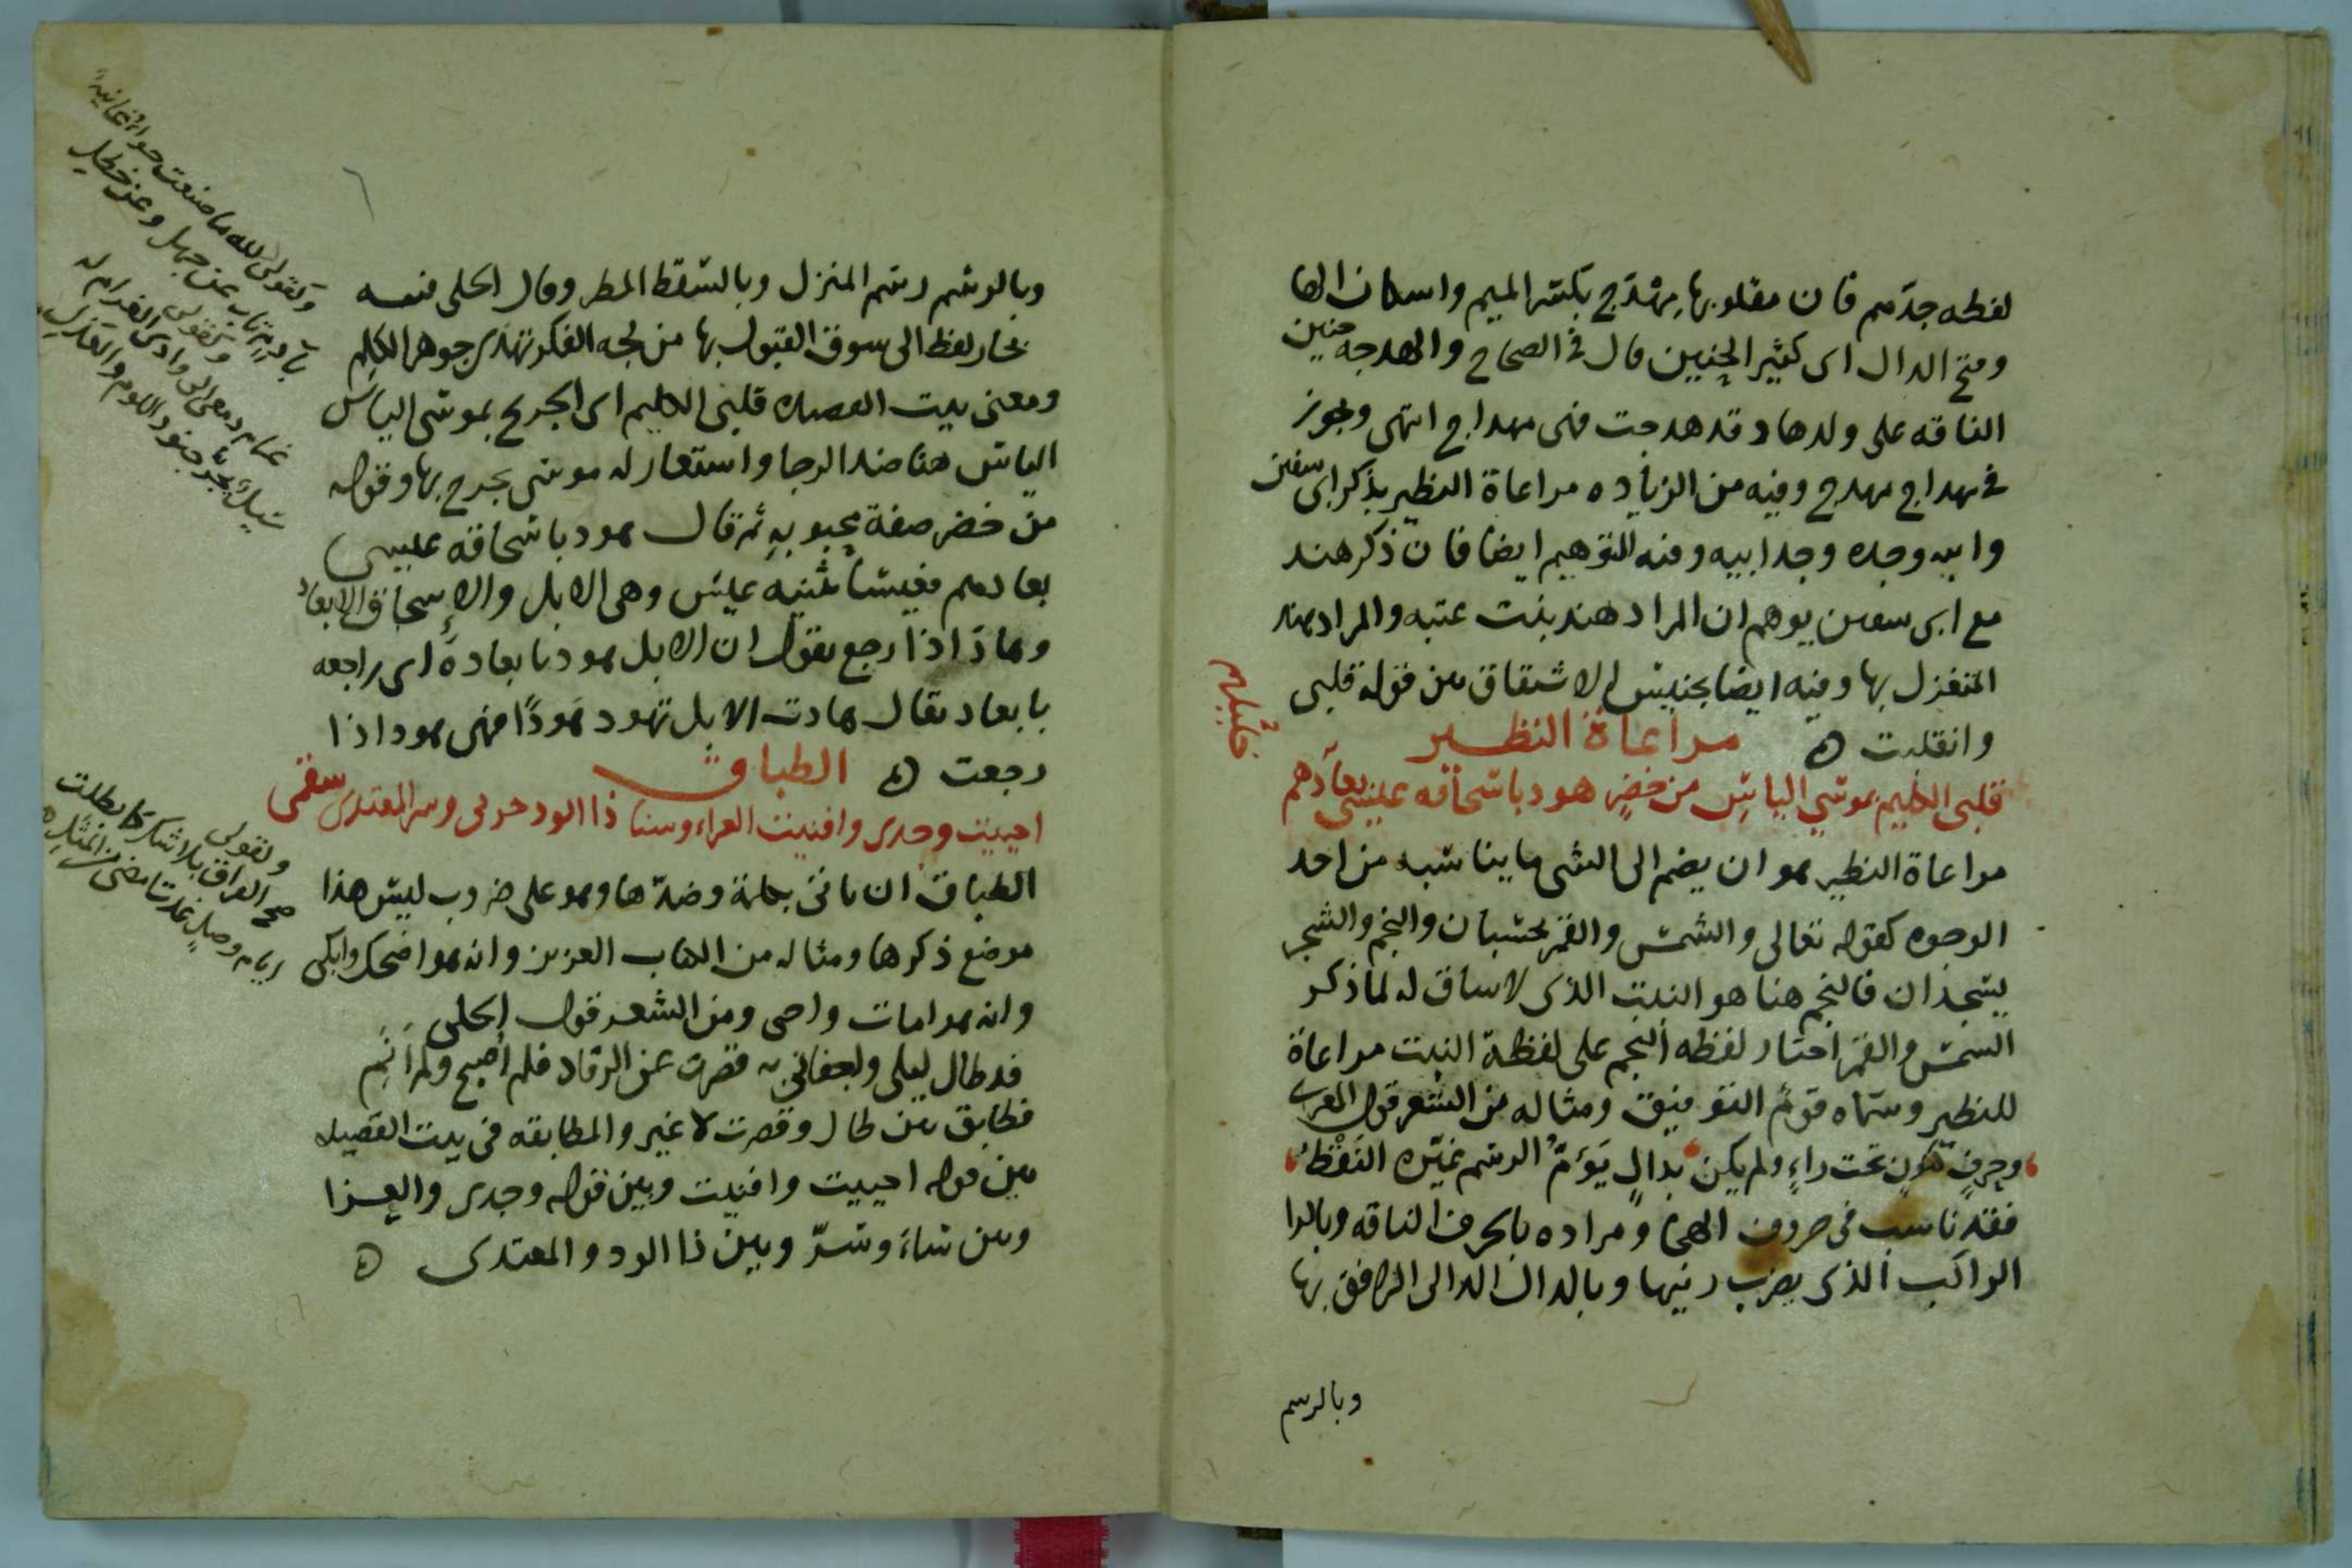 لفظه جدهم فان مقلوبها مهدج بكسر الميم واسكان الها
وفتح الدال اى كثير الحنين قال فى الصحاح والهدجه حنين
الناقه على ولدها وقد هدجت فهى مهداج انتهى وجوز
فى مهداج مهدج وفيه من الزياده مراعاة النظير بذكر ابى سفين
وابيه وجده وجد ابيه وفيه التوهيم ايضا فان ذكر هند
مع ابى سفين يوهم ان المراد هند بنت عتبه والمراد هند
المتغزل بها وفيه ايضا تجنيس الاشتقاق من قوله قلبى
وانقلبت ه مراعاة النظير
قلبى الكليم بموسى الياس من خضر هود باسحاقه عيسى بعادهم
مراعاة النظير هو ان يضم الى الشى ما يناسبه من احد
الوجوه كقوله تعالى والشمس والقمر بحسبان والنجم والشجر
يسجدان فالنجم هنا هو النبت الذى لا ساق له لما ذكر
الشمس والقمر اختار لفظه النجم على لفظة النبت مراعاة
للنظير وسماه قوم التوفيق ومثاله من الشعر قول المعرى
وحرف كنون تحت راء ولم يكن بدال يؤم الرسم غيره النقط
فقد ناسب فى حروف الهجا ومراده بالحرف الناقه وبالرا
الراكب الذى يضرب رئيها وبالدال الدالى الرافق بها
وبالرسم
وبالرسم رسم المنزل وبالنقط المطر وقال الحلى فيه
تجار لفظ الى سوق القبول بها من لجه الفكر تهدى جوهر الكلم
ومعنى بيت القصيده قلبى الكليم اى الجريح بموسى الياس
الياس هنا ضد الرجا واستعار له موسى يجرح بها وقوله
من خضر صفة محبوبه ثم قال هود باسحاقه عيسى
بعادهم فعيسا تثنيه عيس وهى الابل والإسحاق الابعاد
وهاد اذا رجع يقول ان الابل هود نا بعادة اى راجعه
بابعاد يقال هادت الابل تهود هودًا فهى هود اذا
رجعت ه الطباق
احييت وجدى وافنيت العزاء وسنا ذا الود حولى وسر المعتدى سقمى
الطباق ان ياتى بكلمة وضدها وهو على ضروب ليس هذا
موضع ذكرها ومثاله من الكتاب العزيز وانه هو اضحك وابكى
وانه هو امات واحى ومن الشعر قول الحلى
قد طال ليلى واجفانى به قصرت عن الرقاد فلم أصبح ولم أنم
فطابق بين طال وقصرت لا غير والمطابقه فى بيت القصيده
بين قوله احييت وافنيت وبين قوله وجدى والعزا
وبين ساءَ وسرّ وبين ذا الود والمعتدى ه
وكقولى لله ما صنعت
عن جهل وعن خطل
وكقولى
غمام دمعى الى وادى الغرام له
سيل جنود اللوم والعذل
وكقولى
صح الفراق بلا شك